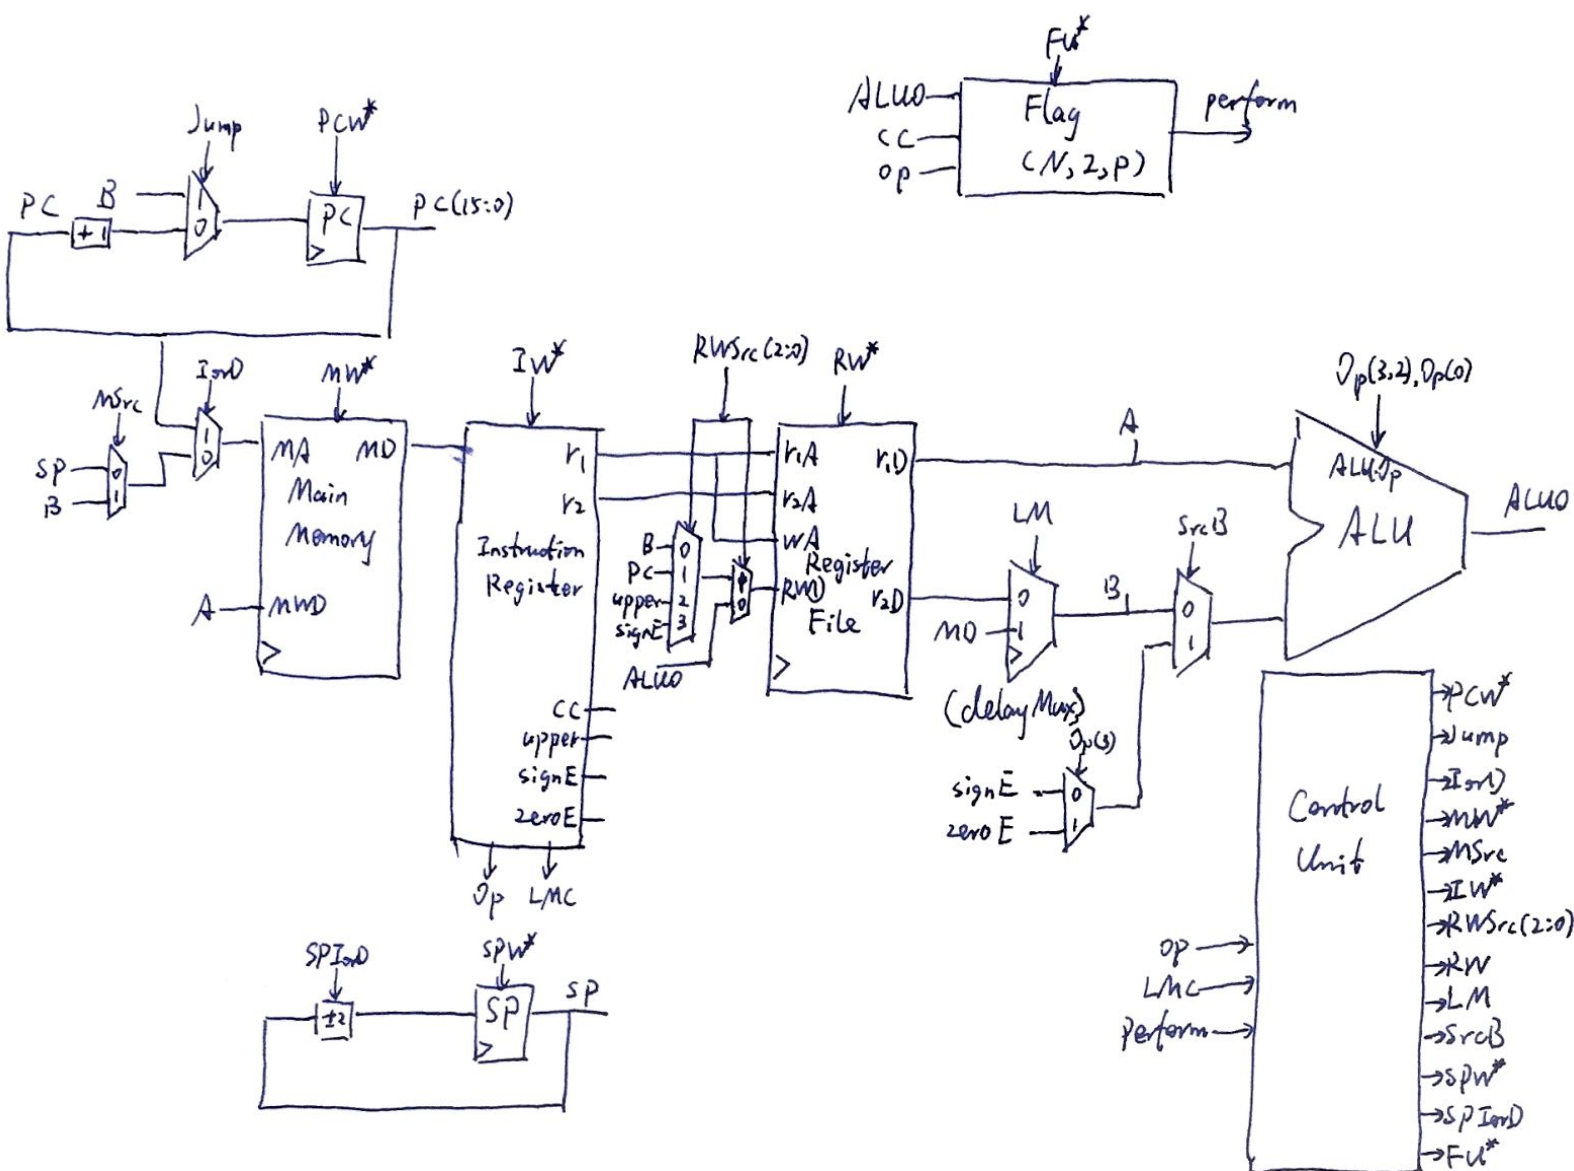 Fu*
ALUO
CC
op
Flag
(N,Z,P)
perform
Jump
PCW*
PC
B
+1
1
0
PC
PC(15:0)
IorD
MSrc
SP
B
0
1
1
0
MW*
MA
MD
Main
Memory
A
MWD
IW*
r1
r2
Instruction
Register
CC
upper
signE
zeroE
Op
LMC
RWSrc(2:0)
B
PC
upper
signE
0
1
2
3
ALUO
0
RW*
r1A
r2A
wA
RWD
Register
File
r1D
r2D
A
LM
0
1
MD
(delayMux)
B
SrcB
0
1
Op(3)
signE
zeroE
0
1
Op(3,2),Op(0)
ALUOp
ALU
ALUO
SPIorD
±2
SPW*
SP
SP
Control
Unit
op
LMC
Perform
PCW*
Jump
IorD
MW*
MSrc
IW*
RWSrc(2:0)
RW
LM
SrcB
SPW*
SPIorD
Fu*